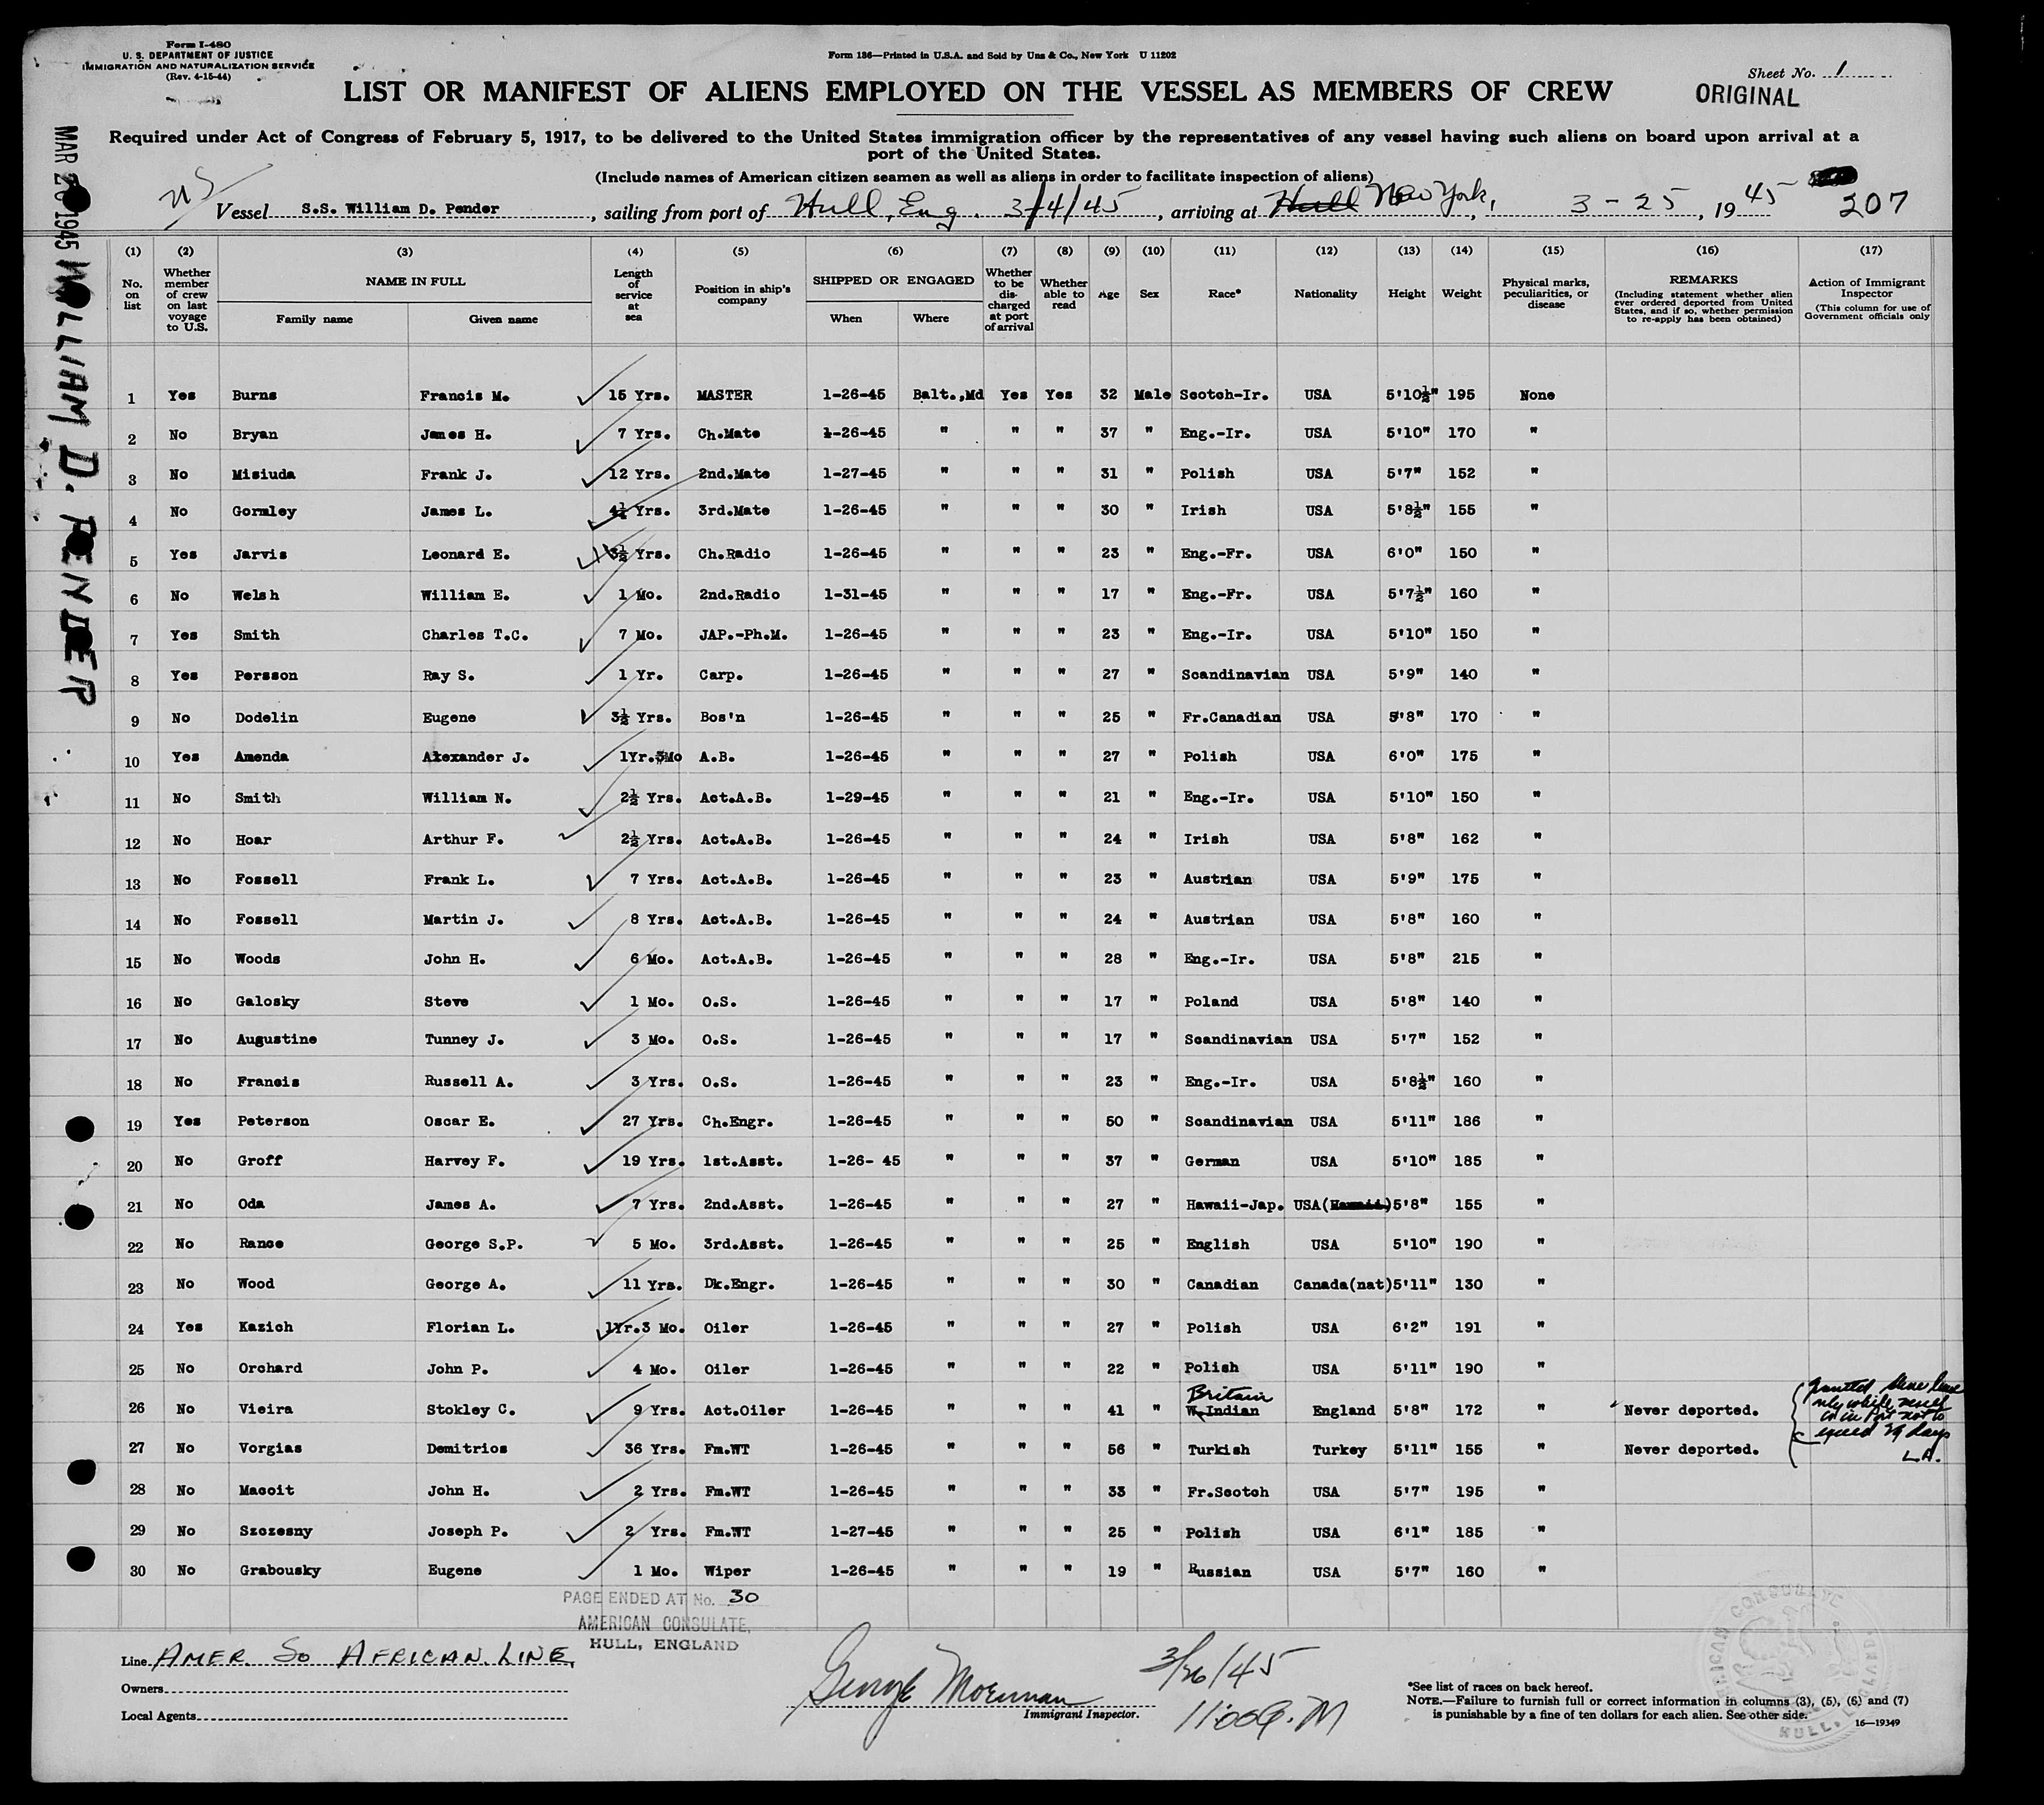 Form I-480
U. S. DEPARTMENT OF JUSTICE
IMMIGRATION AND NATURALIZATION SERVICE
(Rev. 4-15-44)
Form 136—Printed in U.S.A. and Sold by Unz & Co., New York U 11202
Sheet No. 1
ORIGINAL
LIST OR MANIFEST OF ALIENS EMPLOYED ON THE VESSEL AS MEMBERS OF CREW
Required under Act of Congress of February 5, 1917, to be delivered to the United States immigration officer by the representatives of any vessel having such aliens on board upon arrival at a
port of the United States.
(Include names of American citizen seamen as well as aliens in order to facilitate inspection of aliens)
Vessel S.S. William D. Pender, sailing from port of Hull, Eng. 3/4/45, arriving at Hull New York, 3-25, 1945
207
MAR 26 1945 WILLIAM D. PENDER
(1) (2) (3) (4) (5) (6) (7) (8) (9) (10) (11) (12) (13) (14) (15) (16) (17)
No. on list
Whether member of crew on last voyage to U.S.
NAME IN FULL
Family name
Given name
Length of service at sea
Position in ship's company
SHIPPED OR ENGAGED
When
Where
Whether to be discharged at port of arrival
Whether able to read
Age
Sex
Race*
Nationality
Height
Weight
Physical marks, peculiarities, or disease
REMARKS
(Including statement whether alien ever ordered deported from United States, and if so, whether permission to re-apply has been obtained)
Action of Immigrant Inspector
(This column for use of Government officials only
1 Yes Burns Francis M. 15 Yrs. MASTER 1-26-45 Balt.,Md Yes Yes 32 Male Scotch-Ir. USA 5'10½" 195 None
2 No Bryan James H. 7 Yrs. Ch.Mate 1-26-45 " " " 37 " Eng.-Ir. USA 5'10" 170 "
3 No Misiuda Frank J. 12 Yrs. 2nd.Mate 1-27-45 " " " 31 " Polish USA 5'7" 152 "
4 No Gormley James L. 4½ Yrs. 3rd.Mate 1-26-45 " " " 30 " Irish USA 5'8½" 155 "
5 Yes Jarvis Leonard E. 3½ Yrs. Ch.Radio 1-26-45 " " " 23 " Eng.-Fr. USA 6'0" 150 "
6 No Welsh William E. 1 Mo. 2nd.Radio 1-31-45 " " " 17 " Eng.-Fr. USA 5'7½" 160 "
7 Yes Smith Charles T.C. 7 Mo. JAP.-Ph.M. 1-26-45 " " " 23 " Eng.-Ir. USA 5'10" 150 "
8 Yes Persson Ray S. 1 Yr. Carp. 1-26-45 " " " 27 " Scandinavian USA 5'9" 140 "
9 No Dodelin Eugene 3½ Yrs. Bos'n 1-26-45 " " " 25 " Fr.Canadian USA 5'8" 170 "
10 Yes Amenda Alexander J. 1Yr.3Mo A.B. 1-26-45 " " " 27 " Polish USA 6'0" 175 "
11 No Smith William N. 2½ Yrs. Act.A.B. 1-29-45 " " " 21 " Eng.-Ir. USA 5'10" 150 "
12 No Hoar Arthur F. 2½ Yrs. Act.A.B. 1-26-45 " " " 24 " Irish USA 5'8" 162 "
13 No Fossell Frank L. 7 Yrs. Act.A.B. 1-26-45 " " " 23 " Austrian USA 5'9" 175 "
14 No Fossell Martin J. 8 Yrs. Act.A.B. 1-26-45 " " " 24 " Austrian USA 5'8" 160 "
15 No Woods John H. 6 Mo. Act.A.B. 1-26-45 " " " 28 " Eng.-Ir. USA 5'8" 215 "
16 No Galosky Steve 1 Mo. O.S. 1-26-45 " " " 17 " Poland USA 5'8" 140 "
17 No Augustine Tunney J. 3 Mo. O.S. 1-26-45 " " " 17 " Scandinavian USA 5'7" 152 "
18 No Francis Russell A. 3 Yrs. O.S. 1-26-45 " " " 23 " Eng.-Ir. USA 5'8½" 160 "
19 Yes Peterson Oscar E. 27 Yrs. Ch.Engr. 1-26-45 " " " 50 " Scandinavian USA 5'11" 186 "
20 No Groff Harvey F. 19 Yrs. 1st.Asst. 1-26- 45 " " " 37 " German USA 5'10" 185 "
21 No Oda James A. 7 Yrs. 2nd.Asst. 1-26-45 " " " 27 " Hawaii-Jap. USA(Hawaii) 5'8" 155 "
22 No Rance George S.P. 5 Mo. 3rd.Asst. 1-26-45 " " " 25 " English USA 5'10" 190 "
23 No Wood George A. 11 Yrs. Dk.Engr. 1-26-45 " " " 30 " Canadian Canada(nat) 5'11" 130 "
24 Yes Kazich Florian L. 1Yr.3 Mo. Oiler 1-26-45 " " " 27 " Polish USA 6'2" 191 "
25 No Orchard John P. 4 Mo. Oiler 1-26-45 " " " 22 " Polish USA 5'11" 190 "
Britain
26 No Vieira Stokley C. 9 Yrs. Act.Oiler 1-26-45 " " " 41 " W.Indian England 5'8" 172 " Never deported.
27 No Vorgias Demitrios 36 Yrs. Fm.WT 1-26-45 " " " 56 " Turkish Turkey 5'11" 155 " Never deported.
granted shore leave
only while vessel
is in port not to
exceed 29 days
L.A.
28 No Macoit John H. 2 Yrs. Fm.WT 1-26-45 " " " 33 " Fr.Scotch USA 5'7" 195 "
29 No Szczesny Joseph P. 2 Yrs. Fm.WT 1-27-45 " " " 25 " Polish USA 6'1" 185 "
30 No Grabousky Eugene 1 Mo. Wiper 1-26-45 " " " 19 " Russian USA 5'7" 160 "
PAGE ENDED AT No. 30
AMERICAN CONSULATE,
HULL, ENGLAND
Line AMER. SO AFRICAN. LINE,
Owners
Local Agents
3/26/45
11:00 A.M
Immigrant Inspector.
*See list of races on back hereof.
NOTE.—Failure to furnish full or correct information in columns (3), (5), (6) and (7)
is punishable by a fine of ten dollars for each alien. See other side.
16—19349